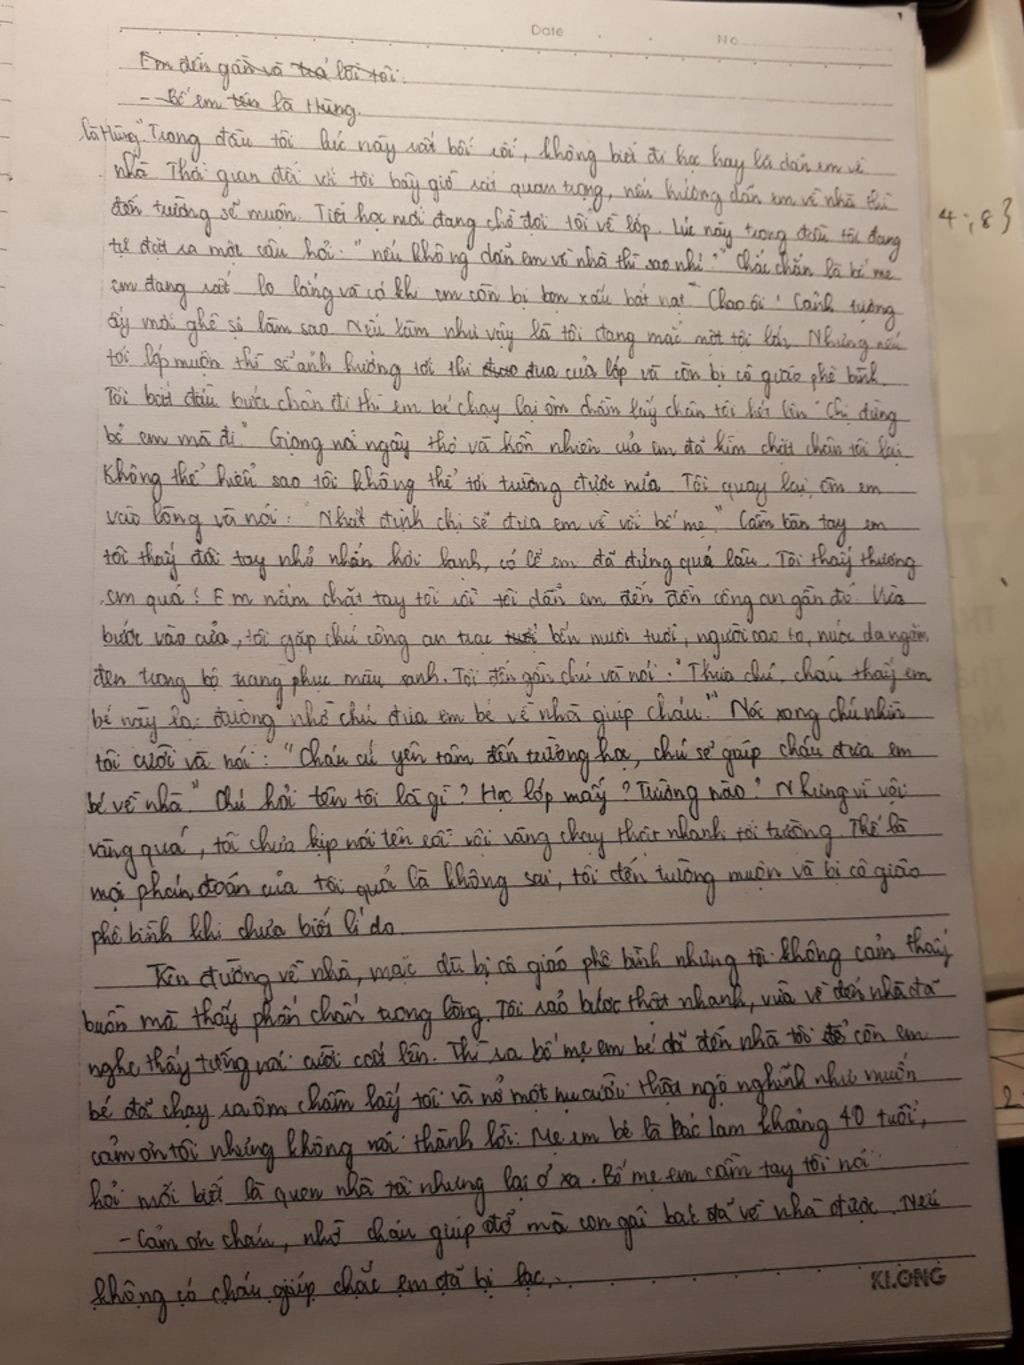 Date No
Em đến gần và trả lời tôi:
- Bố em tên là Hùng.
là Hùng". Trong đầu tôi lúc này rất bối rối, không biết đi học hay là dẫn em về
nhà. Thời gian đối với tôi bây giờ rất quan trọng, nếu hướng dẫn em về nhà thì
đến trường sẽ muộn. Tiết học mới đang chờ đợi tôi về lớp. Lúc này trong đầu tôi đang
tự đặt ra một câu hỏi: "nếu không dẫn em về nhà thì sao nhỉ?" Chắc chắn là bố mẹ
em đang rất lo lắng và có khi em còn bị bọn xấu bắt nạt". Chao ôi! Cảnh tượng
ấy mới ghê sợ làm sao. Nếu làm như vậy là tôi đang mắc một tội lớn. Nhưng nếu
tới lớp muộn thì sẽ ảnh hưởng tới thi đua của lớp và còn bị cô giáo phê bình.
Tôi bắt đầu bước chân đi thì em bé chạy lại ôm chầm lấy chân tôi hét lên "Chị đừng
bỏ em mà đi". Giọng nói ngây thơ và hồn nhiên của em đã kìm chặt chân tôi lại.
Không thể hiểu sao tôi không thể tới trường được nữa. Tôi quay lại, ôm em
vào lòng và nói: "Nhất định chị sẽ đưa em về với bố mẹ". Cầm bàn tay em
tôi thấy đôi tay nhỏ nhắn hơi lạnh, có lẽ em đã đứng quá lâu. Tôi thấy thương
em quá! Em nắm chặt tay tôi rồi tôi dẫn em đến đồn công an gần đó. Vừa
bước vào cửa, tôi gặp chú công an trạc bốn mươi tuổi, người cao to, nước da ngăm
đen trong bộ trang phục màu xanh. Tôi đến gần chú và nói: "Thưa chú, cháu thấy em
bé này lạc đường nhờ chú đưa em bé về nhà giúp cháu". Nói xong chú nhìn
tôi cười và nói: "Cháu cứ yên tâm đến trường học, chú sẽ giúp cháu đưa em
bé về nhà." Chú hỏi tên tôi là gì? Học lớp mấy? Trường nào? Nhưng vì vội
vàng quá, tôi chưa kịp nói tên rồi vội vàng chạy thật nhanh tới trường. Thế là
mọi phán đoán của tôi quả là không sai, tôi đến trường muộn và bị cô giáo
phê bình khi chưa biết lí do.
Trên đường về nhà, mặc dù bị cô giáo phê bình nhưng tôi không cảm thấy
buồn mà thấy phấn chấn trong lòng. Tôi rảo bước thật nhanh, vừa về đến nhà đã
nghe thấy tiếng nói cười cất lên. Thì ra bố mẹ em bé đã đến nhà tôi để còn em
bé đã chạy ra ôm chầm lấy tôi và nở một nụ cười thật ngộ nghĩnh như muốn
cảm ơn tôi nhưng không nói thành lời. Mẹ em bé là bác Lam khoảng 40 tuổi,
hỏi mới biết là quen nhà tôi nhưng lại ở xa. Bố mẹ em cầm tay tôi nói:
- Cảm ơn cháu, nhờ cháu giúp đỡ mà con gái bác đã về nhà được. Nếu
không có cháu giúp chắc em đã bị lạc.
KLONG
4;8}
2